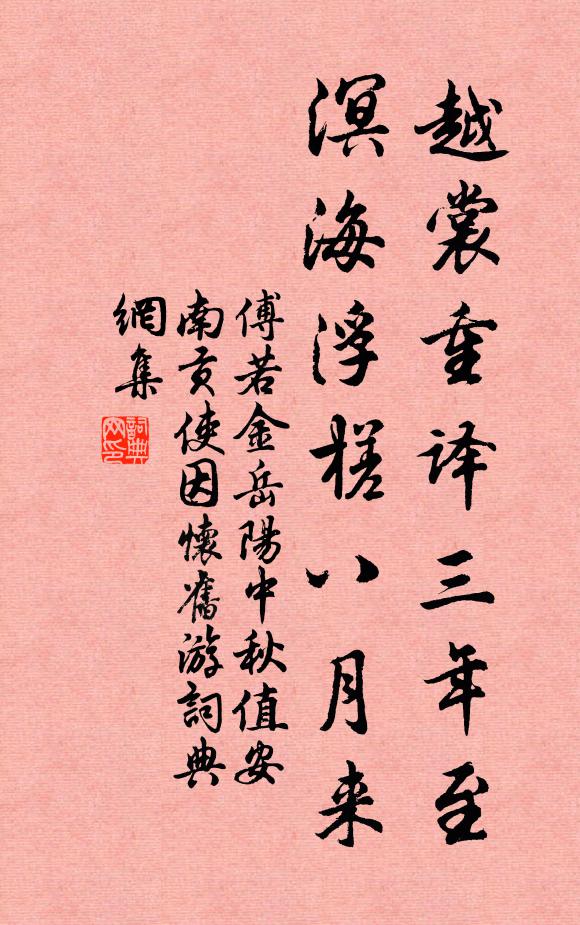 越裳重译三年至
溟海浮槎八月来
傅若金岳陽中秋值安
南贡使因懷舊游詞典
網集
詞典
网印